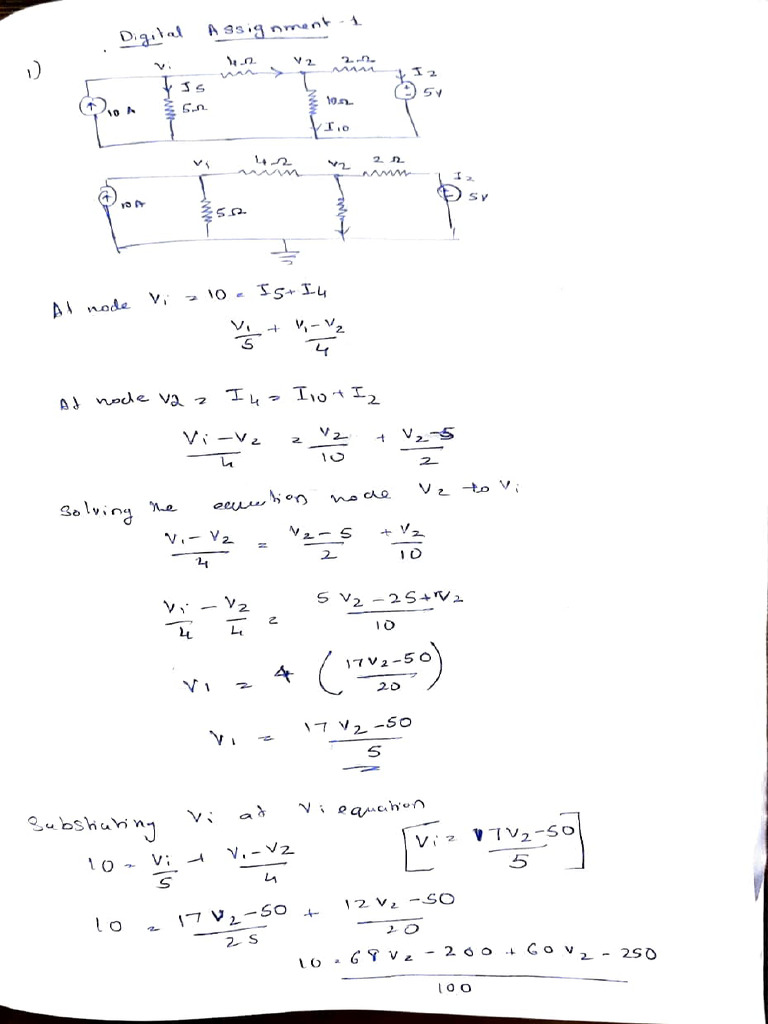 Digital Assignment - 1
1)
V1 4Ω V2 2Ω
10 A I5 5Ω 10Ω I10 I2 5V
V1 4Ω V2 2Ω I2
10A 5Ω 5V
At node V1 = 10 = I5 + I4
V1/5 + V1-V2/4
At node V2 = I4 = I10 + I2
V1-V2/4 = V2/10 + V2-5/2
Solving the equation node V2 to V1
V1-V2/4 = V2-5/2 + V2/10
V1/4 - V2/4 = 5V2-25+V2/10
V1 = 4 (17V2-50/20)
V1 = 17V2-50/5
Substiuting V1 at V1 equation
[V1 = 17V2-50/5]
10 = V1/5 + V1-V2/4
10 = 17V2-50/25 + 12V2-50/20
10 = 68V2-200+60V2-250/100